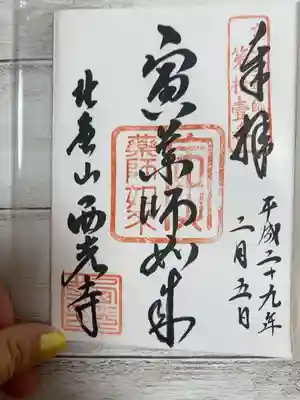 奉拝
平成二十九年
二月五日
寅薬師如来
北‌山西光寺